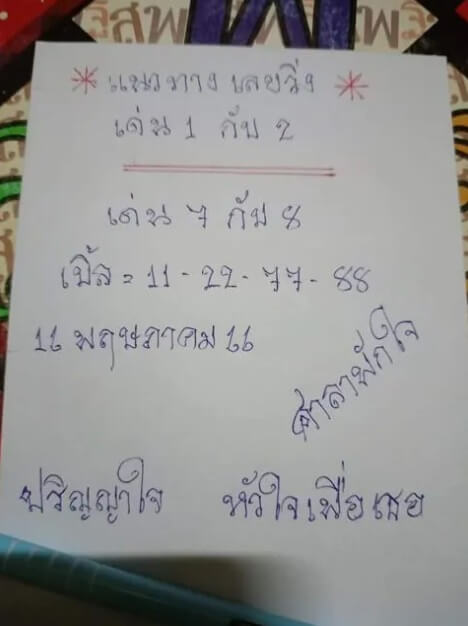 แนวทางเลขวิ่ง
เด่น 1 กับ 2
เด่น 7 กับ 8
เบิ้ล = 11 - 22 - 77 - 88
16 พฤษภาคม 66
ศาลาพักใจ
ปริญญาใจ หัวใจเพื่อเธอ